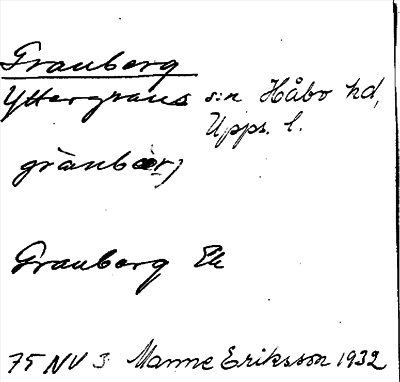 Granberg
Yttergrans s:n Håbo hd,
Upps. l.
grànbær)
Granberg Ek
75 NV 3 Manne Eriksson 1932